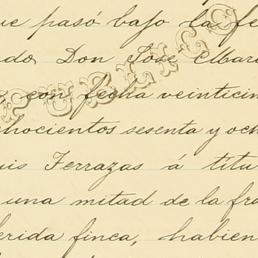 ue pasó bajo la fe
ado Don José Mbar
con fecha veinticin
chocientos sesenta y och
uis Ferrazas á títu
una mitad de la fra
erida finca, habien